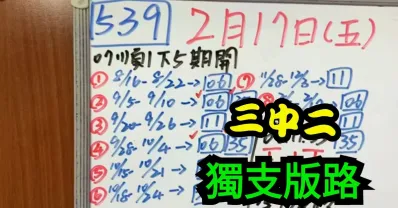 539 2月17日(五)
07順1下5期開
① 8/16-8/22→06 ⑨ 11/28-12/3→11
② 9/5-9/10→06
③ 9/20-9/26→11
④ 9/28-10/4→06 35 35
⑤ 10/15-10/21→
⑥ 10/18-10/24→
三中二
獨支版路